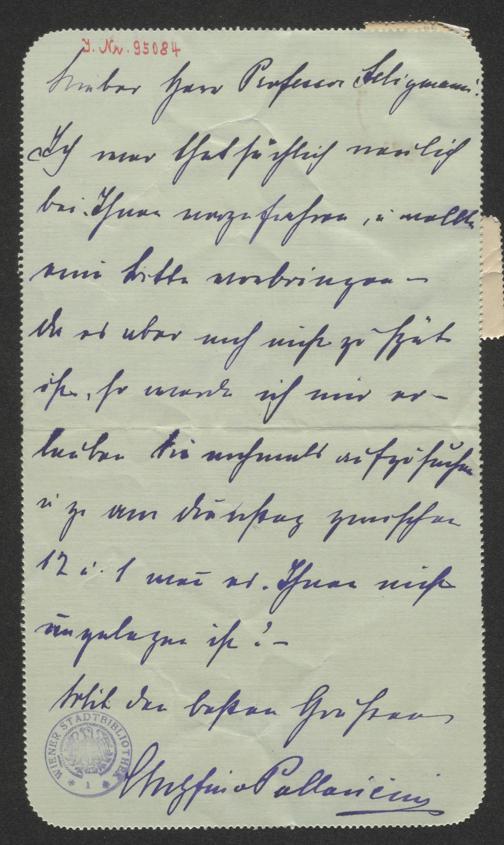 J. Nr. 95084
Lieber Herr Professor Seligmann!
Ich war thatsächlich neulich
bei Ihnen vorgefahren, u wollte
eine Bitte vorbringen –
da es aber noch nicht zu spät
ist, so werde ich mir er-
lauben Sie nochmals aufzusuchen
u zw am Dienstag zwischen
12 u. 1 wenn es Ihnen nicht
ungelegen ist? –
Mit den besten Grüßen
Pallavicini
WIENER STADTBIBLIOTHEK
1